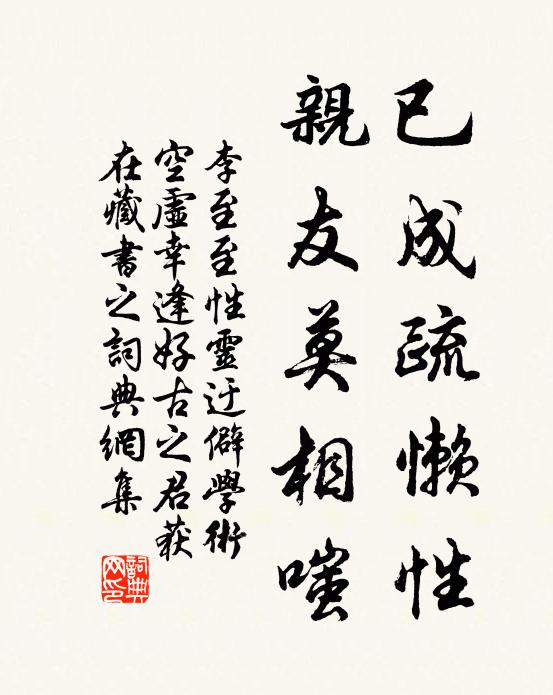 已成疏懒性
親友莫相嗤
李至至性靈迂僻學術
空虛幸逢好古之君获
在藏書之詞典網集
詞典网印